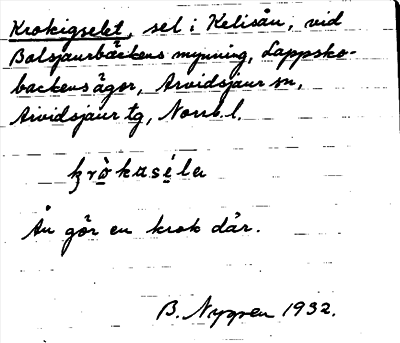 Krokigselet, sel i Kelisån, vid
Bolsjaurbäckens mynning, Lappsko-
backens ägor, Arvidsjaur sn,
Arvidsjaur tg, Norrb. l.
kròkasélɐ
Ån gör en krok där.
B. Nygren 1932.